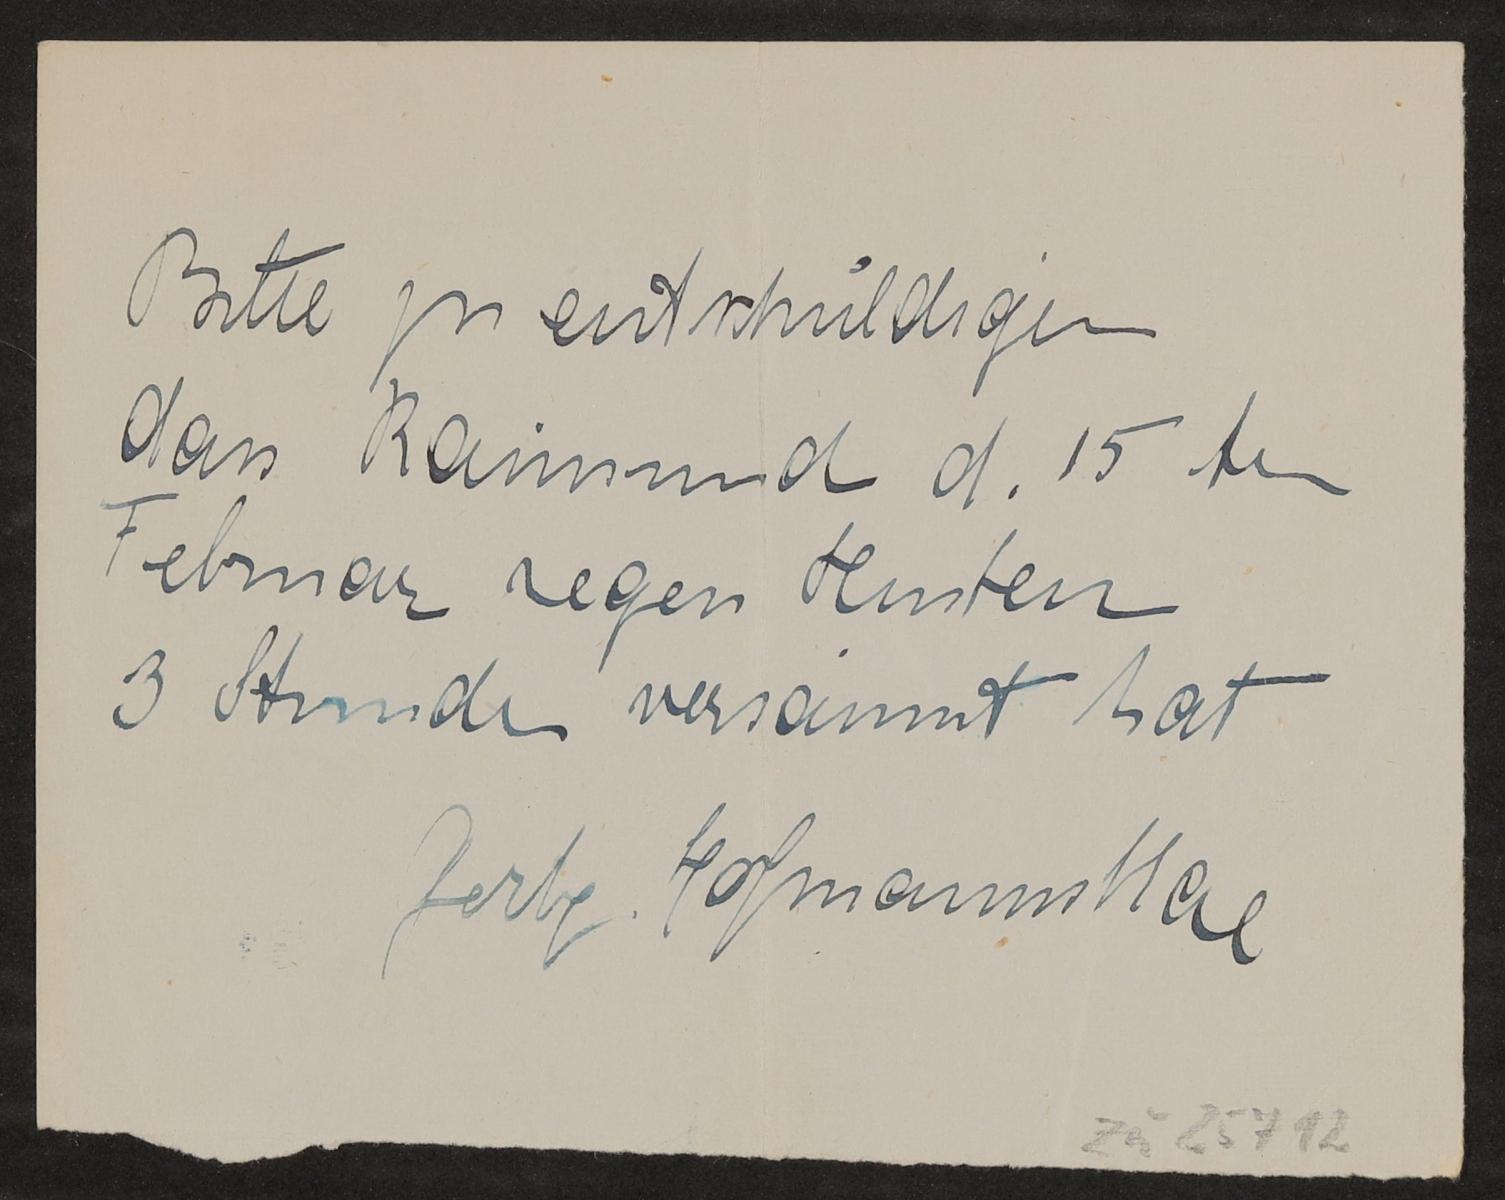 Bitte zu entschuldigen
dass Raimund d. 15 ten
Februar wegen Husten
3 Stunden versäumt hat
Gerty. Hofmannsthal
Zu 25712